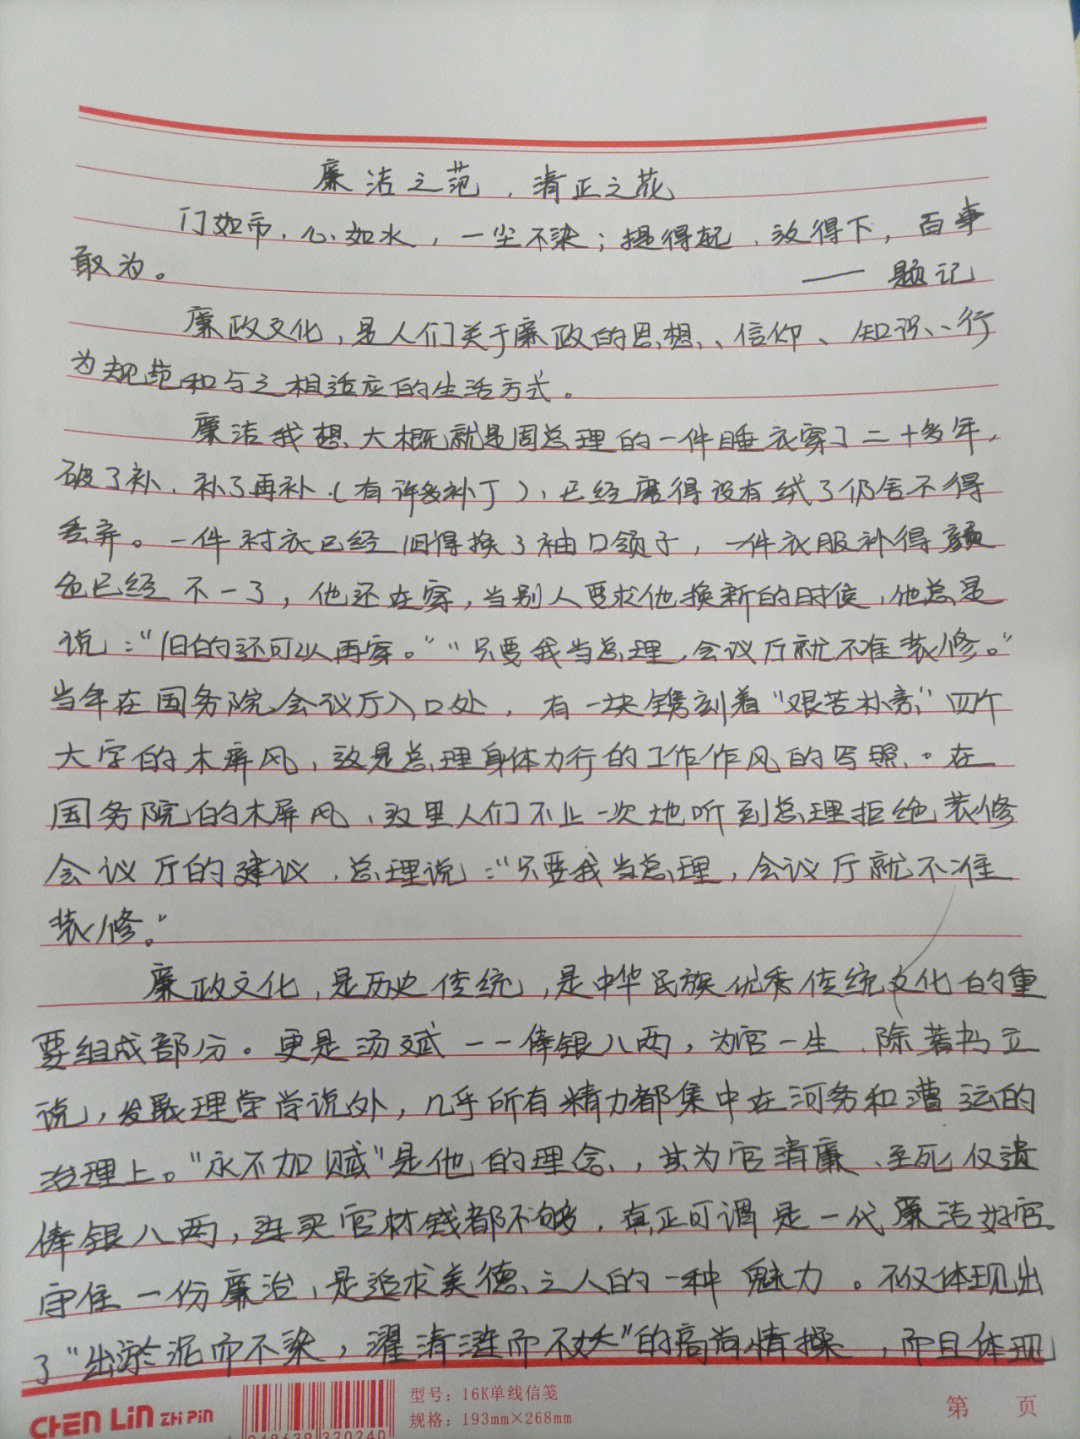 廉洁之范，清正之花
门如市、心如水，一尘不染；提得起、放得下，百事
敢为。
——题记
廉政文化，是人们关于廉政的思想、信仰、知识、行
为规范和与之相适应的生活方式。
廉洁我想、大概就是周总理的一件睡衣穿了二十多年，
破了补、补了再补（有许多补丁），已经磨得没有绒了仍舍不得
丢弃。一件衬衣已经旧得换了袖口领子，一件衣服补得颜
色已经不一了，他还在穿，当别人要求他换新的时候，他总是
说："旧的还可以再穿。""只要我当总理，会议厅就不准装修。"
当年在国务院会议厅入口处，有一块镌刻着"艰苦朴素"四个
大字的木屏风，这是总理身体力行的工作作风的写照。在
国务院的木屏风，这里人们不止一次地听到总理拒绝装修
会议厅的建议，总理说："只要我当总理，会议厅就不准
装修。"
廉政文化，是历史传统，是中华民族优秀传统文化的重
要组成部分。更是汤斌一一俸银八两，为官一生，除著书立
说，发展理学学说外，几乎所有精力都集中在河务和漕运的
治理上。"永不加赋"是他的理念，其为官清廉、至死仅遗
俸银八两，连买官材钱都不够，真正可谓是一代廉洁好官。
守住一份廉洁，是追求美德之人的一种魅力。不仅体现出
了"出淤泥而不染，濯清涟而不妖"的高尚情操，而且体现
CHEN LiN ZHi PiN
型号：16K单线信笺
规格：193mm×268mm
第 页